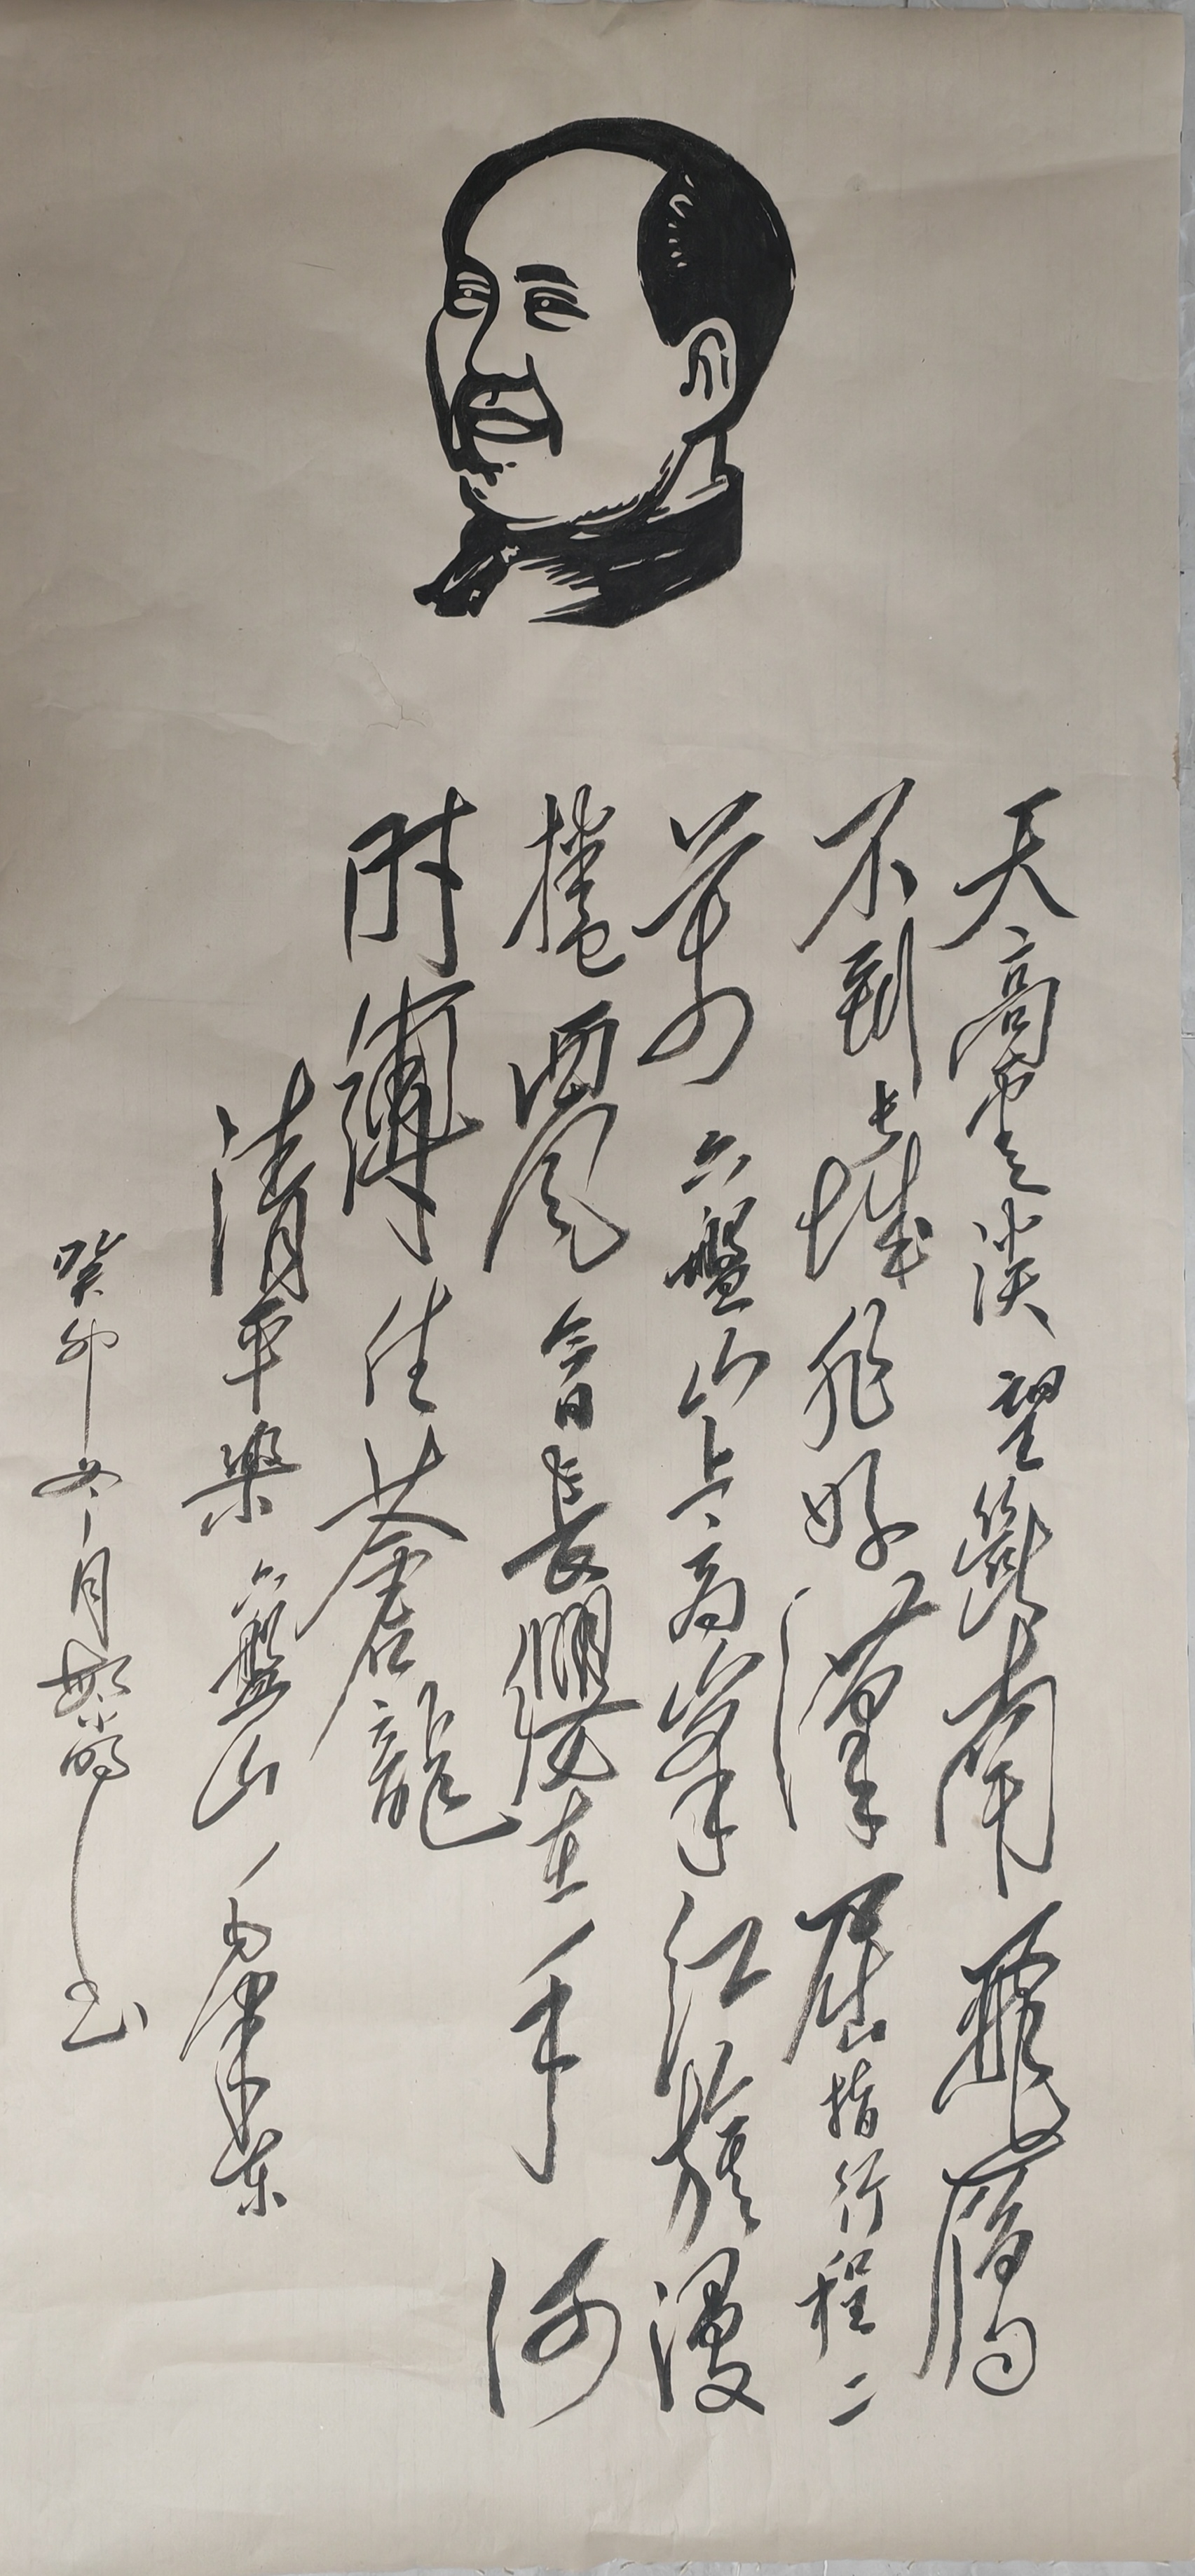 天高雲淡望斷南飛鴈
不到長城非好漢屈指行程二
萬六盤山上高峯紅旗漫
捲西風今日長纓在手何
時縛住蒼龍
清平樂六盤山毛澤東
癸卯月書